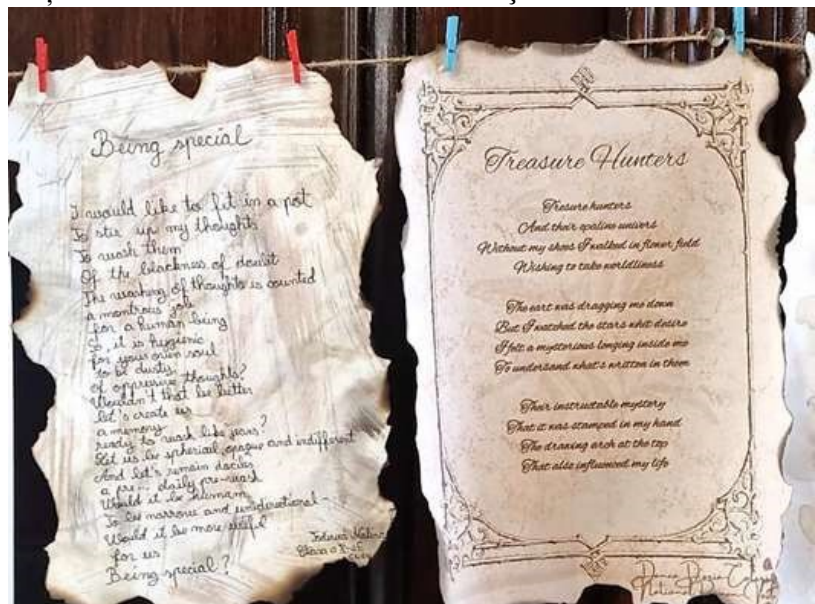 Being special
I would like to fit in a pot
To stir up my thoughts
To wash them
Of the blackness of doubt
The washing of thoughts is counted
a monstrous job
for a human being
So it is hygienic
for your own soul
to be dusty
of oppressive thoughts?
Wouldn't that be better
let's create us
a memory
ready to wash like jeans?
Let us be spherical, opaque and indifferent
And let's remain docile
a daily pre-wash
Would it be human
To be narrow and unidirectional -
Would it be more useful
for us
Being special?
Treasure Hunters
Tresure hunters
And their opaline univers
Without my shoes I walked in flower field
Wishing to take worldliness
The eart was dragging me down
But I watched the stars whit desire
I felt a mysterious longing inside me
To undersand what's written in them
Their instructable mystery
That it was stamped in my hand
The draving arch at the top
That also influenced my life